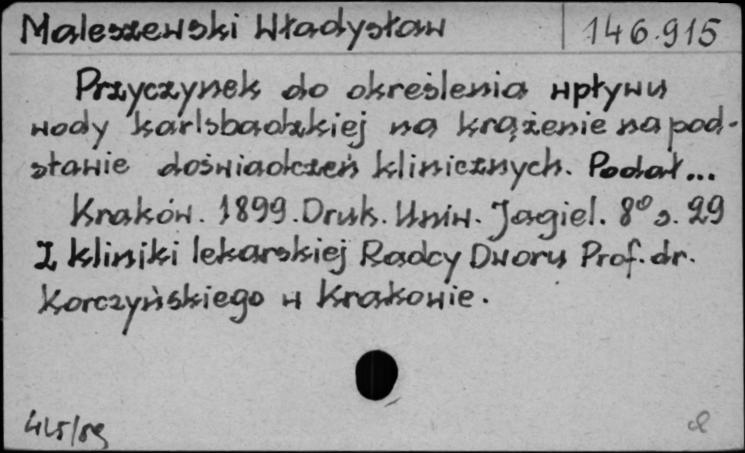 Maleszewski Władysław 146.915
Przyczynek do określenia wpływu
wody karlsbadzkiej na krążenie na pod-
stawie doświadczeń klinicznych. Podał...
Kraków. 1899. Druk. Uniw. Jagiel. 8° s. 29
Z kliniki lekarskiej Radcy Dworu Prof. dr.
Korczyńskiego w Krakowie.